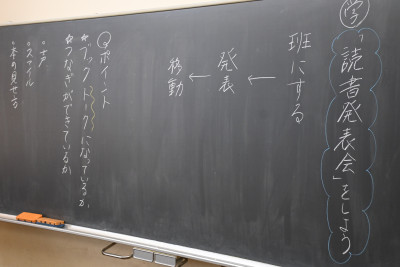 学
「読書発表会」をしよう
班にする
↓
発表
↓
移動
ポイント
☆ブックトークになっているか
☆つなぎができているか
・声
・スマイル
・本の見せ方